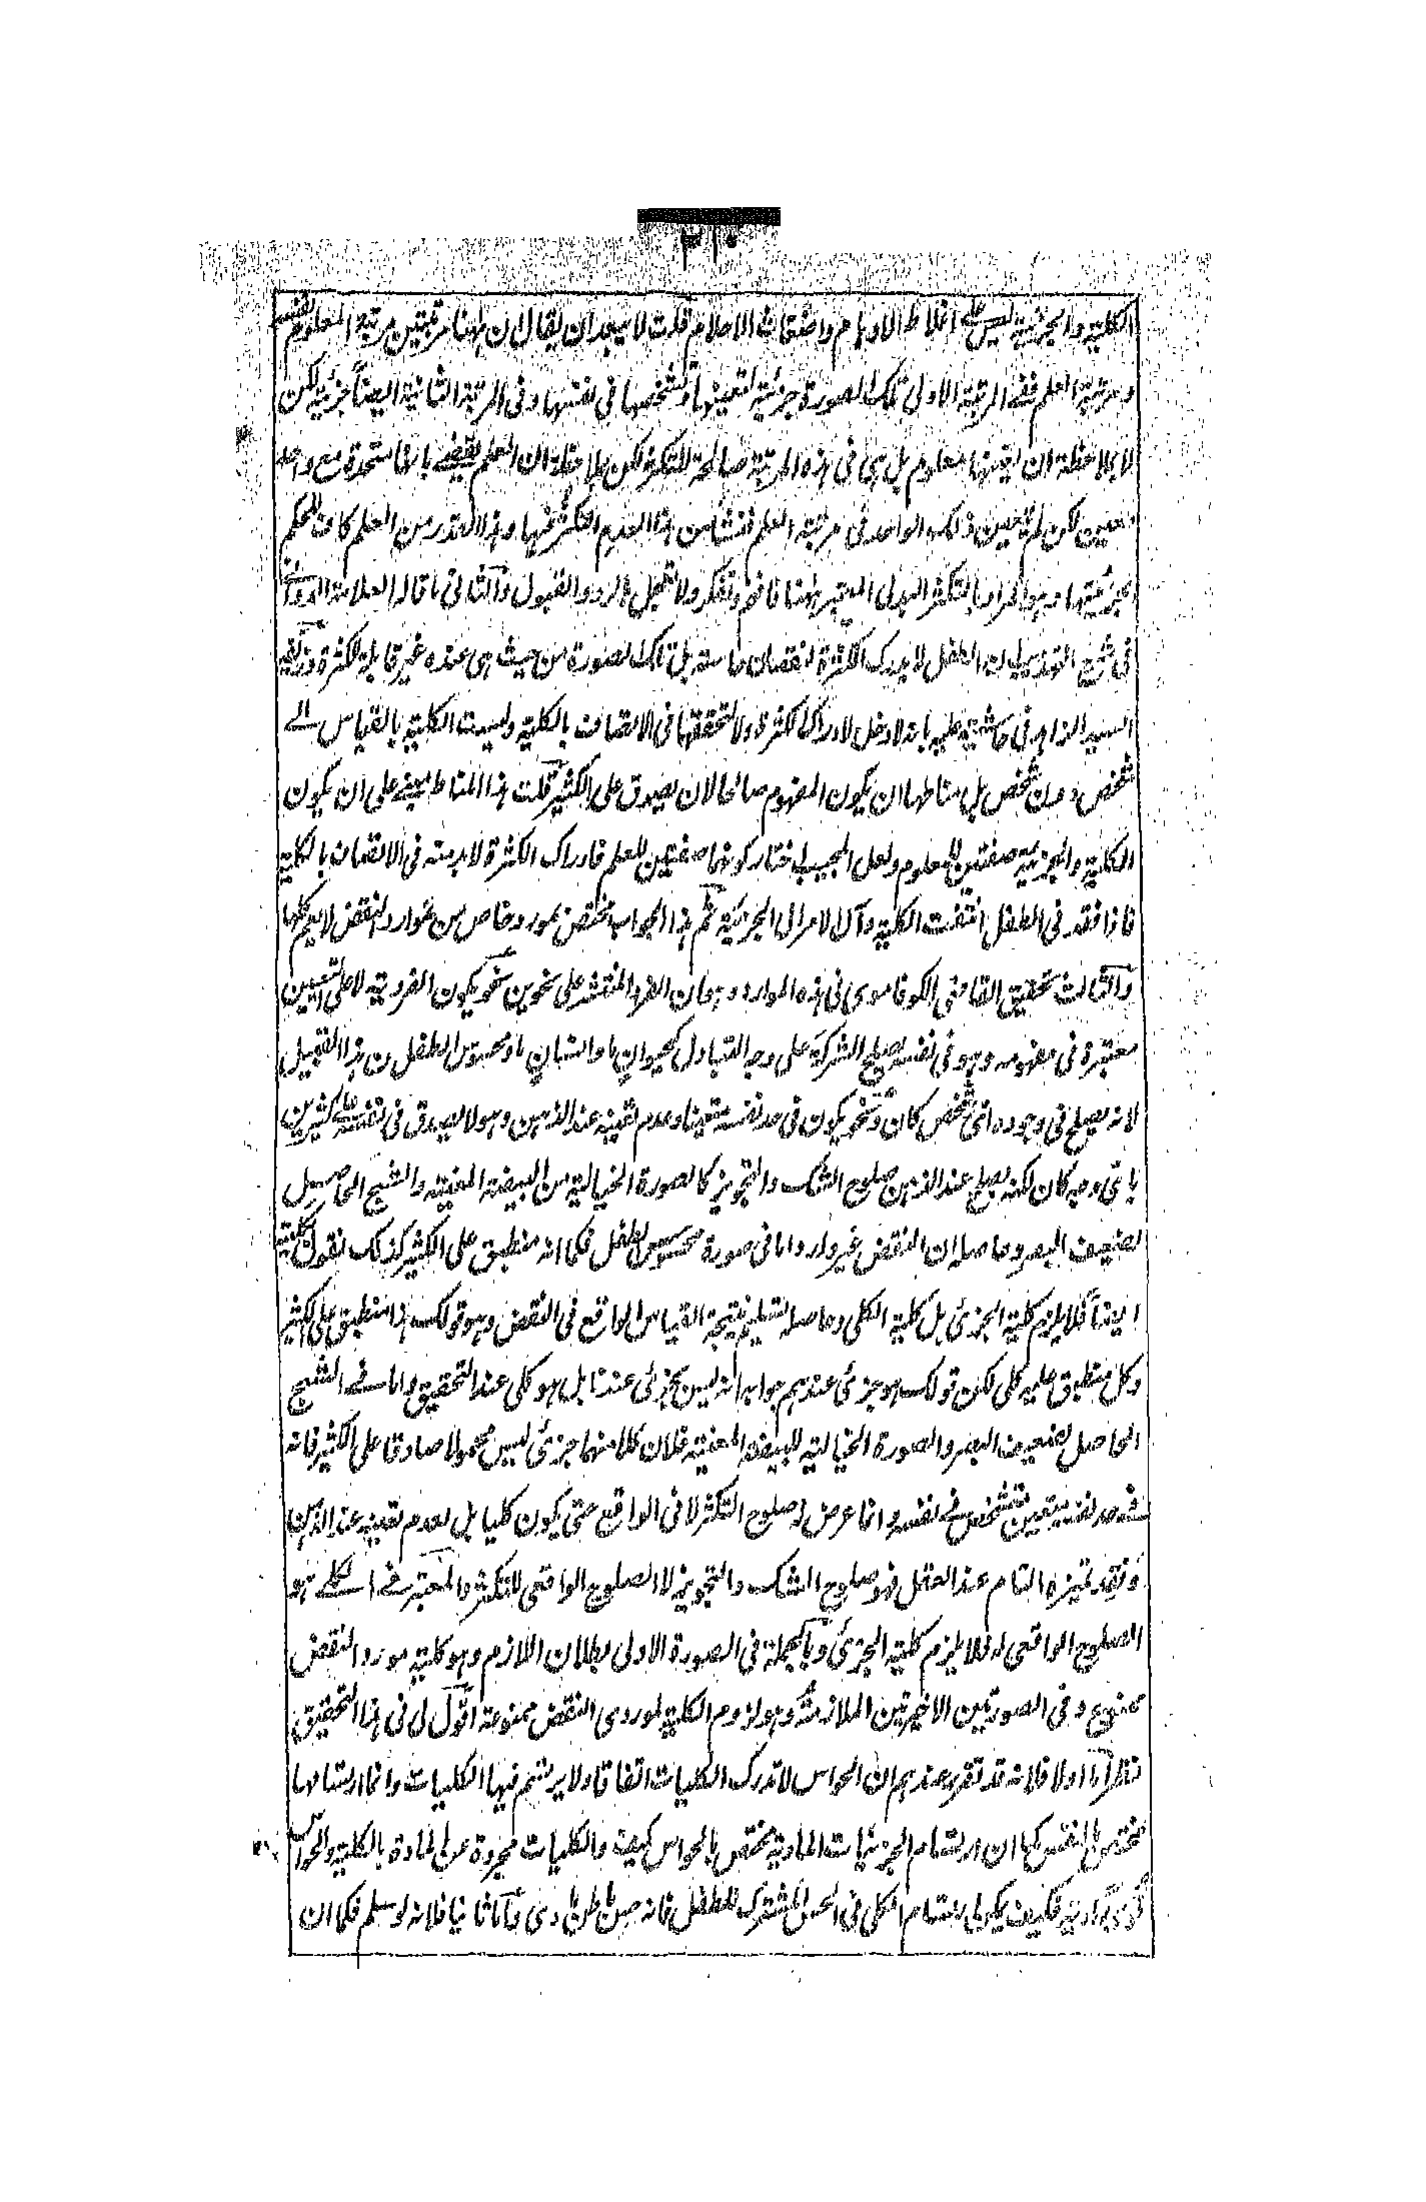 ٢١٠
الكلية والجزئية ليس على اغلاط الاوهام واضغاث الاحلام قلت لا يبعد ان يقال ان ههنا مرتبتين مرتبة المعلوم
ومرتبة العلم ففي المرتبة الاولى تلك الصورة جزئية لتعينها وتشخصها في نفسها وفى المرتبة الثانية ايضاً جزئية لكن
لا بملاحظة ان تعينها معلوم بل هي في هذه المرتبة صالحة للتكثر لكن بملاحظة ان العلم يقضي بانها متحدة مع واحد
معين لكن لم يتعين ذلك الواحد في مرتبة العلم فنشأ من هذا العدم التكثر فيها وهذا القدر من العلم كاف للحكم
بجزئيتها وهو المراد بالتكثر البدلى المعتبر ههنا فافهم وتفكر ولا تعجل بالرد والقبول والثانى ما قاله العلامة الدوانى
في شرح التهذيب ان الطفل لا يدرك الكثرة لنقصان حاسته بل تلك الصورة من حيث هي عنده غير قابلة للكثرة
السيد الزاهد في حاشيته عليه بانه لا دخل لادراك الكثرة ولا لتحققها في الاتصاف بالكلية وليست الكلية بالقياس الى
شخص دون شخص بل مناطها ان يكون المفهوم صالحا لان يصدق على الكثير قلت هذا المناط يبنى على ان يكون
الكلية والجزئية صفتين للمعلوم ولعل المجيب اختار كونهما صفتين للعلم فادراك الكثرة لا بد منه في الاتصاف بالكلية
فاذا فقد في الطفل انتفت الكلية وآل الامر الى الجزئية ثم هذا الجواب مختص بمورد خاص من موارد النقض لا يعم كلها
والثالث تحقيق القاضى الكوفاموى في هذه الموارد وهو ان الفرد المنتشر على نحوين نحو يكون الفردية لا على التعيين
معتبرة في مفهومه وهو في نفسه يصلح الشركة على وجه التبادل كحيوان ما وانسان ما ومحسوس الطفل من هذا القبيل
لانه يصلح في وجوده اى شخص كان ونحو يكون في حد نفسه متعينا وعدم تعينه عند الذهن وهو لا يصدق في نفسه على كثيرين
باى وجه كان لكنه يصلح عند الذهن صلوح الشك والتجويز كالصورة الخيالية من البيضة المعينة والشبح الحاصل
لضعيف البصر وحاصله ان النقض غير وارد اما في صورة محسوس الطفل فكما انه منطبق على الكثير كذلك نقول بكليته
ايضاً فلا يلزم كلية الجزئى بل كلية الكلى وحاصله تسليم نتيجة القياس الواقع في النقض وهو قولك هذا منطبق على الكثير
وكل منطبق عليه كلى لكن قولك هو جزئى عندهم جوابه انه ليس بجزئى عندنا بل هو كلى عند التحقيق واما في الشبح
الحاصل لضعيف البصر والصورة الخيالية للبيضة المعينة فلان كلا منهما جزئى ليس محمولا صادقا على الكثير فانه
في حد نفسه متعين متشخص في نفسه وانما عرض له صلوح التكثر لا في الواقع حتى يكون كليا بل لعدم تعينه عند الذهن
وفقد تميزه التام عند العقل فهو صلوح الشك والتجويز لا الصلوح الواقعى للتكثر والمعتبر في الكلى هو
الصلوح الواقعى له فلا يلزم كلية الجزئى وبالجملة في الصورة الاولى بطلان اللازم وهو كلية مورد النقض
ممنوع وفى الصورتين الاخيرتين الملازمة وهو لزوم الكلية لموردى النقض ممنوعة اقول لى في هذا التحقيق
نظر اما اولا فلانه قد تقرر عندهم ان الحواس لا تدرك الكليات اتفاقا ولا يرتسم فيها الكليات وانما ارتسامها
مختص بالنفس كما ان ارتسام الجزئيات المادية مختص بالحواس كيف والكليات مجردة عن المادة بالكلية والحواس
قوى مادية فكيف يمكن ارتسام الكلى في الحس المشترك للطفل فانه واما ثانيا فلانه لو سلم فكما ان